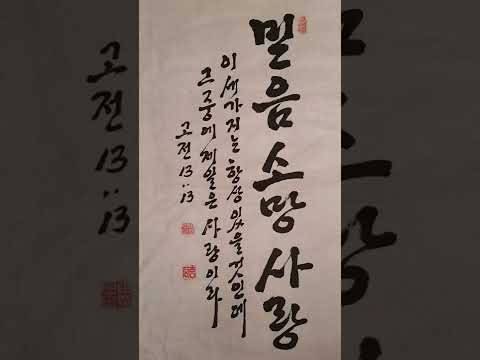 믿음 소망 사랑
이 세가지는 항상 있을것인데
그 중에 제일은 사랑이라
고전 13:13
고전 13:13